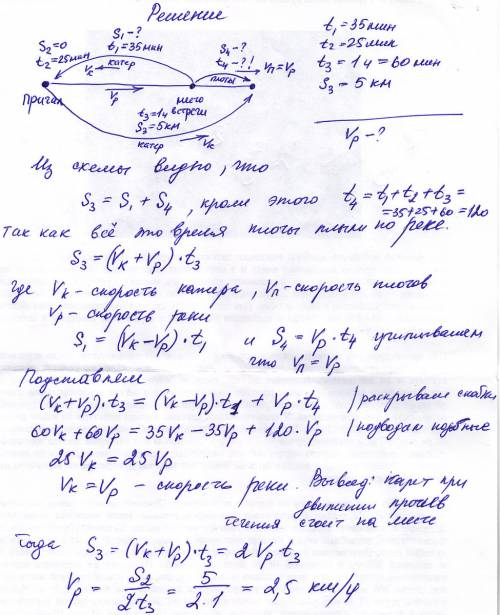 Решение
S₁-?
t₁=35мин
S₂=0
t₂=25мин
катер
Vк
S₄-?
t₄-?!
плоты
Vп=Vр
Причал
Vр
место
встречи
t₃=1ч
S₃=5км
катер
Vк
t₁=35мин
t₂=25мин
t₃=1ч=60мин
S₃=5км
Vр-?
Из схемы видно, что
S₃=S₁+S₄, кроме этого t₄=t₁+t₂+t₃=
=35+25+60=120
так как всё это время плоты плыли по реке.
S₃=(Vк+Vр)·t₃
Где Vк-скорость катера, Vп-скорость плотов
Vр-скорость реки
S₁=(Vк-Vр)·t₁ и S₄=Vр·t₄ учитываем
что Vп=Vр
Подставляем
(Vк+Vр)·t₃=(Vк-Vр)·t₁+Vр·t₄ /раскрываем скобки
60Vк+60Vр=35Vк-35Vр+120·Vр /подводим подобные
25Vк=25Vр
Vк=Vр - скорость реки. Вывод: катер при
движении против
течения стоит на месте
Тогда S₃=(Vк+Vр)·t₃=2Vрt₃
Vр=S₂/2t₃=5/2·1=2,5 км/ч